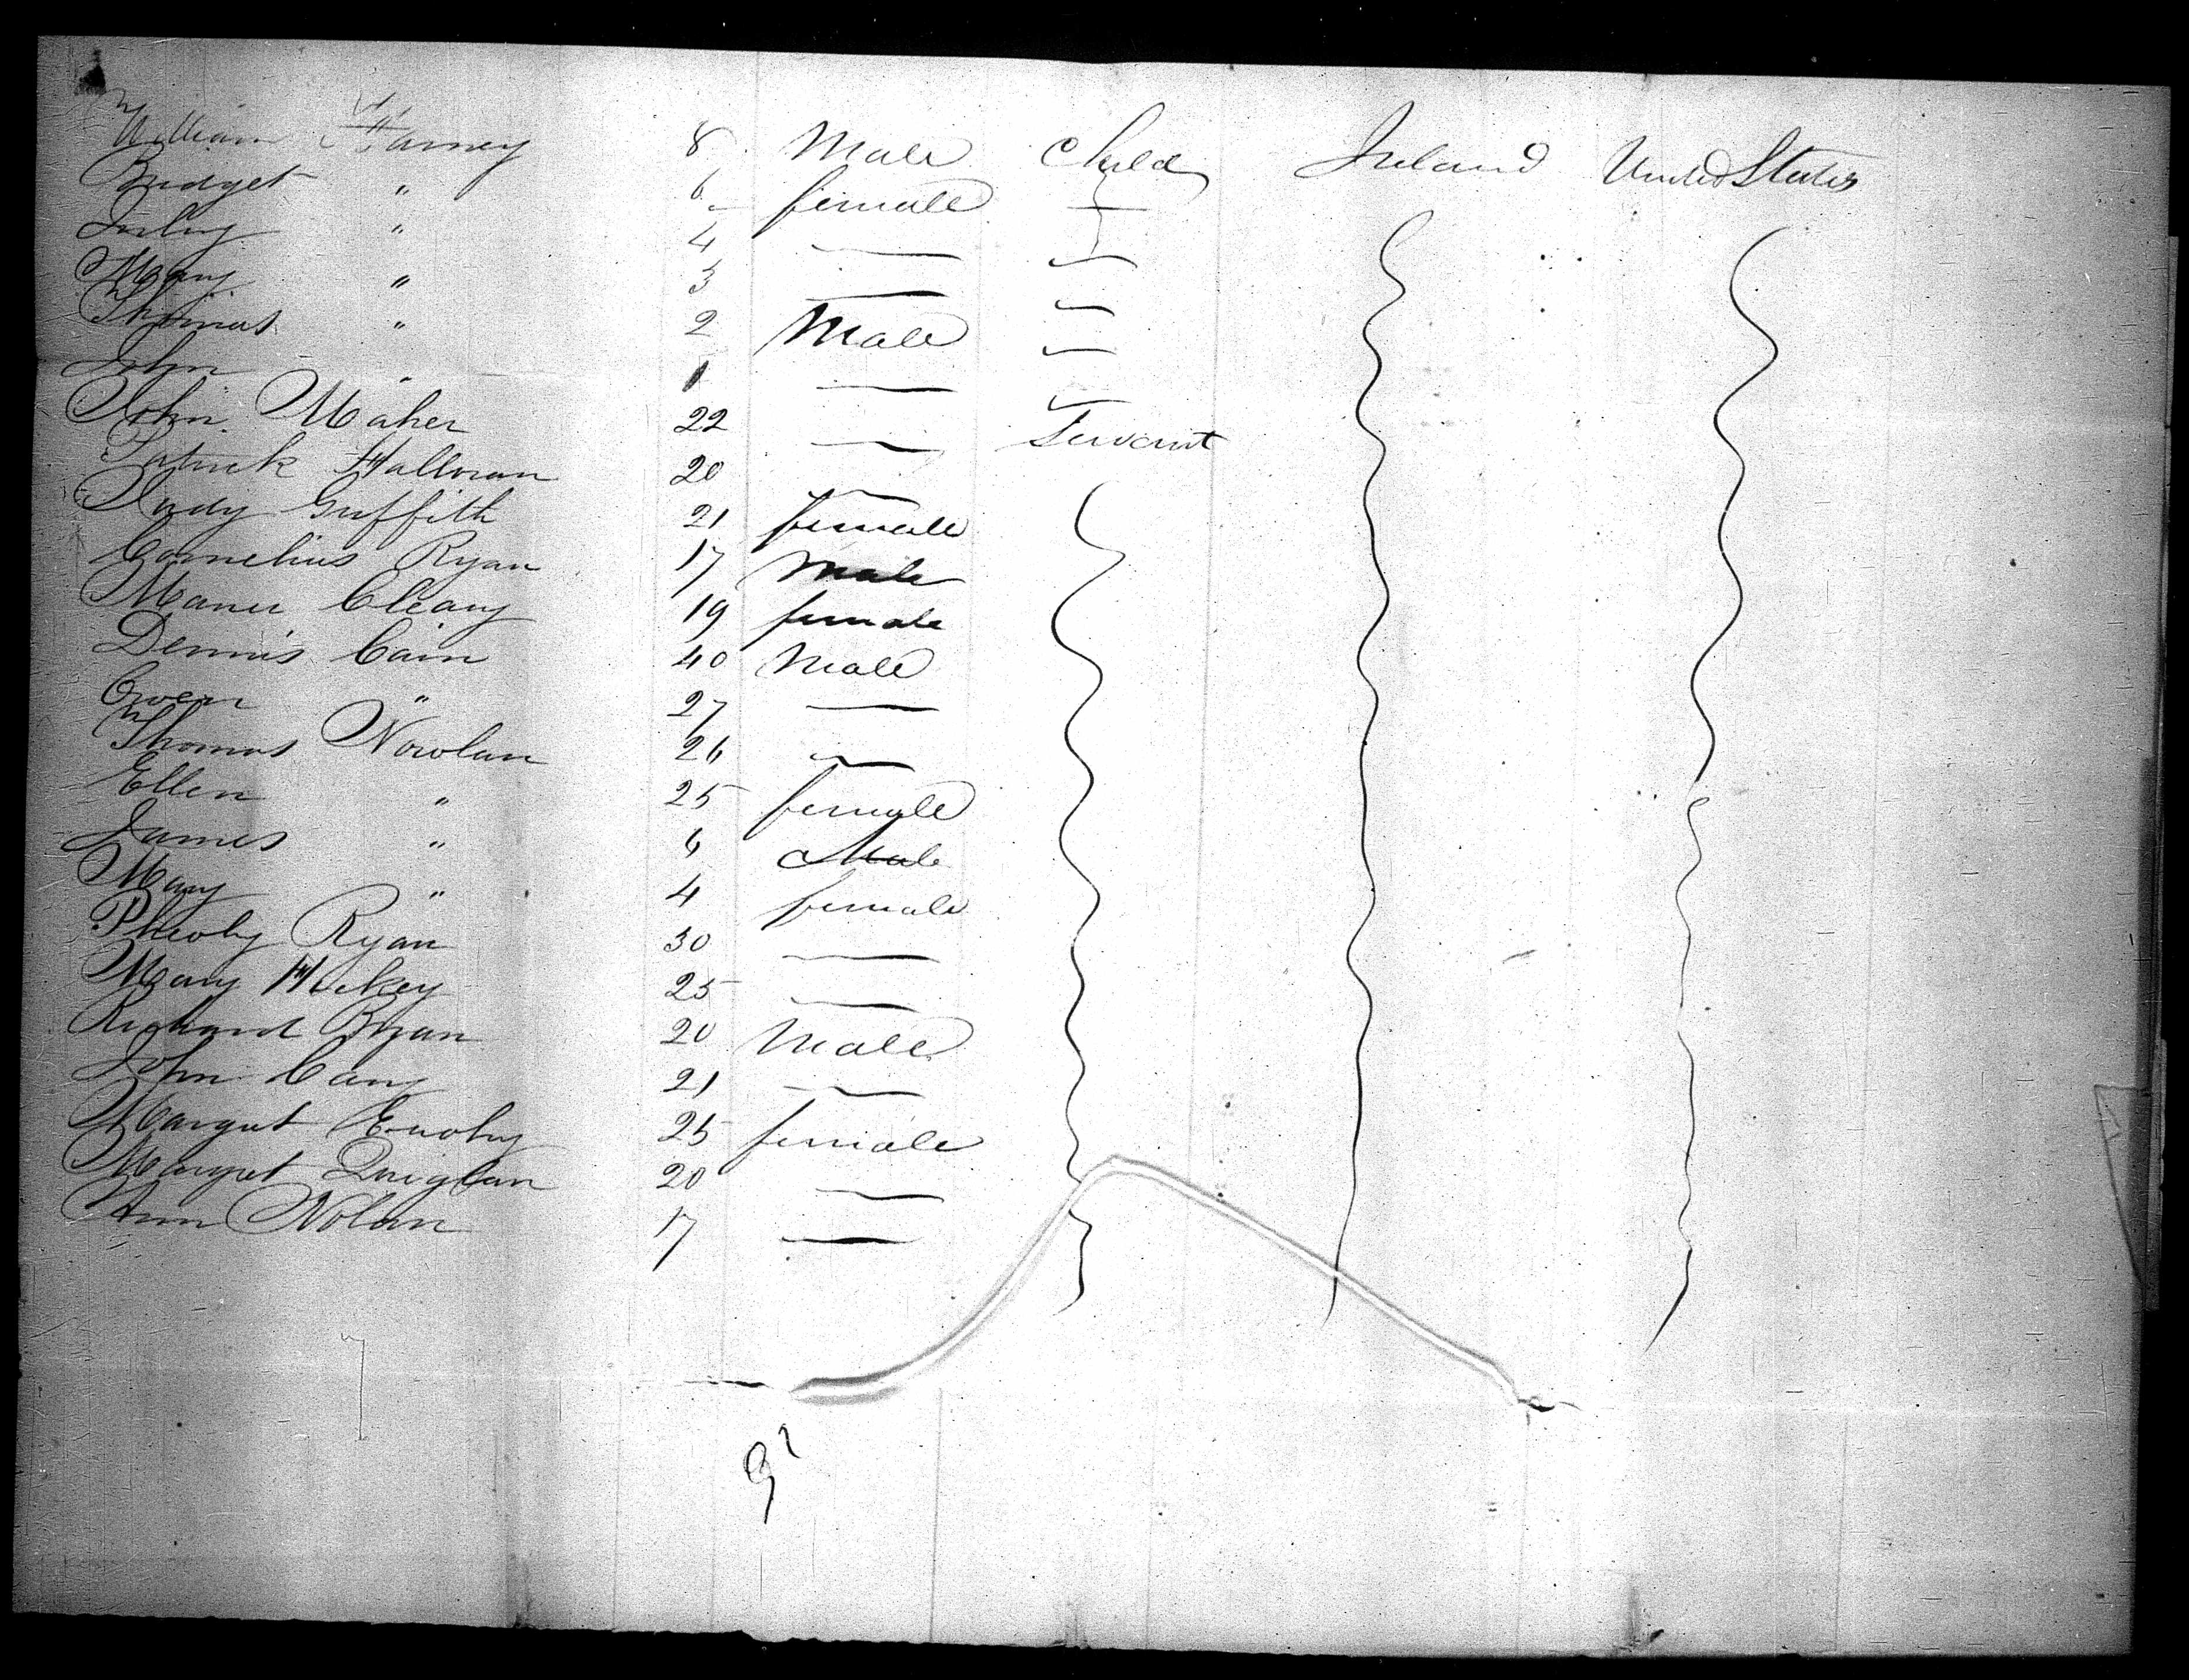 William Harney 8 Male Child Ireland United States
Bridget " 6 female —
July " 4 — —
Mary " 3 — —
Thomas " 2 Male —
John " 1 — —
John Maher 22 — Servant
Patrick Halloran 20 —
Judy Griffith 21 female
Cornelius Ryan 17 Male
Cleary 19 female
Dennis Cain 40 Male
Owen " 27 —
Thomas Nowlan 26 —
Ellen " 25 female
James " 6 Male
Mary " 4 female
Pheoby Ryan 30 —
Mary Hickey 25 —
Richard Ryan 20 Male
John 21 —
Margret 25 female
Margret Quiglan 20 —
Ann Nolan 17 —